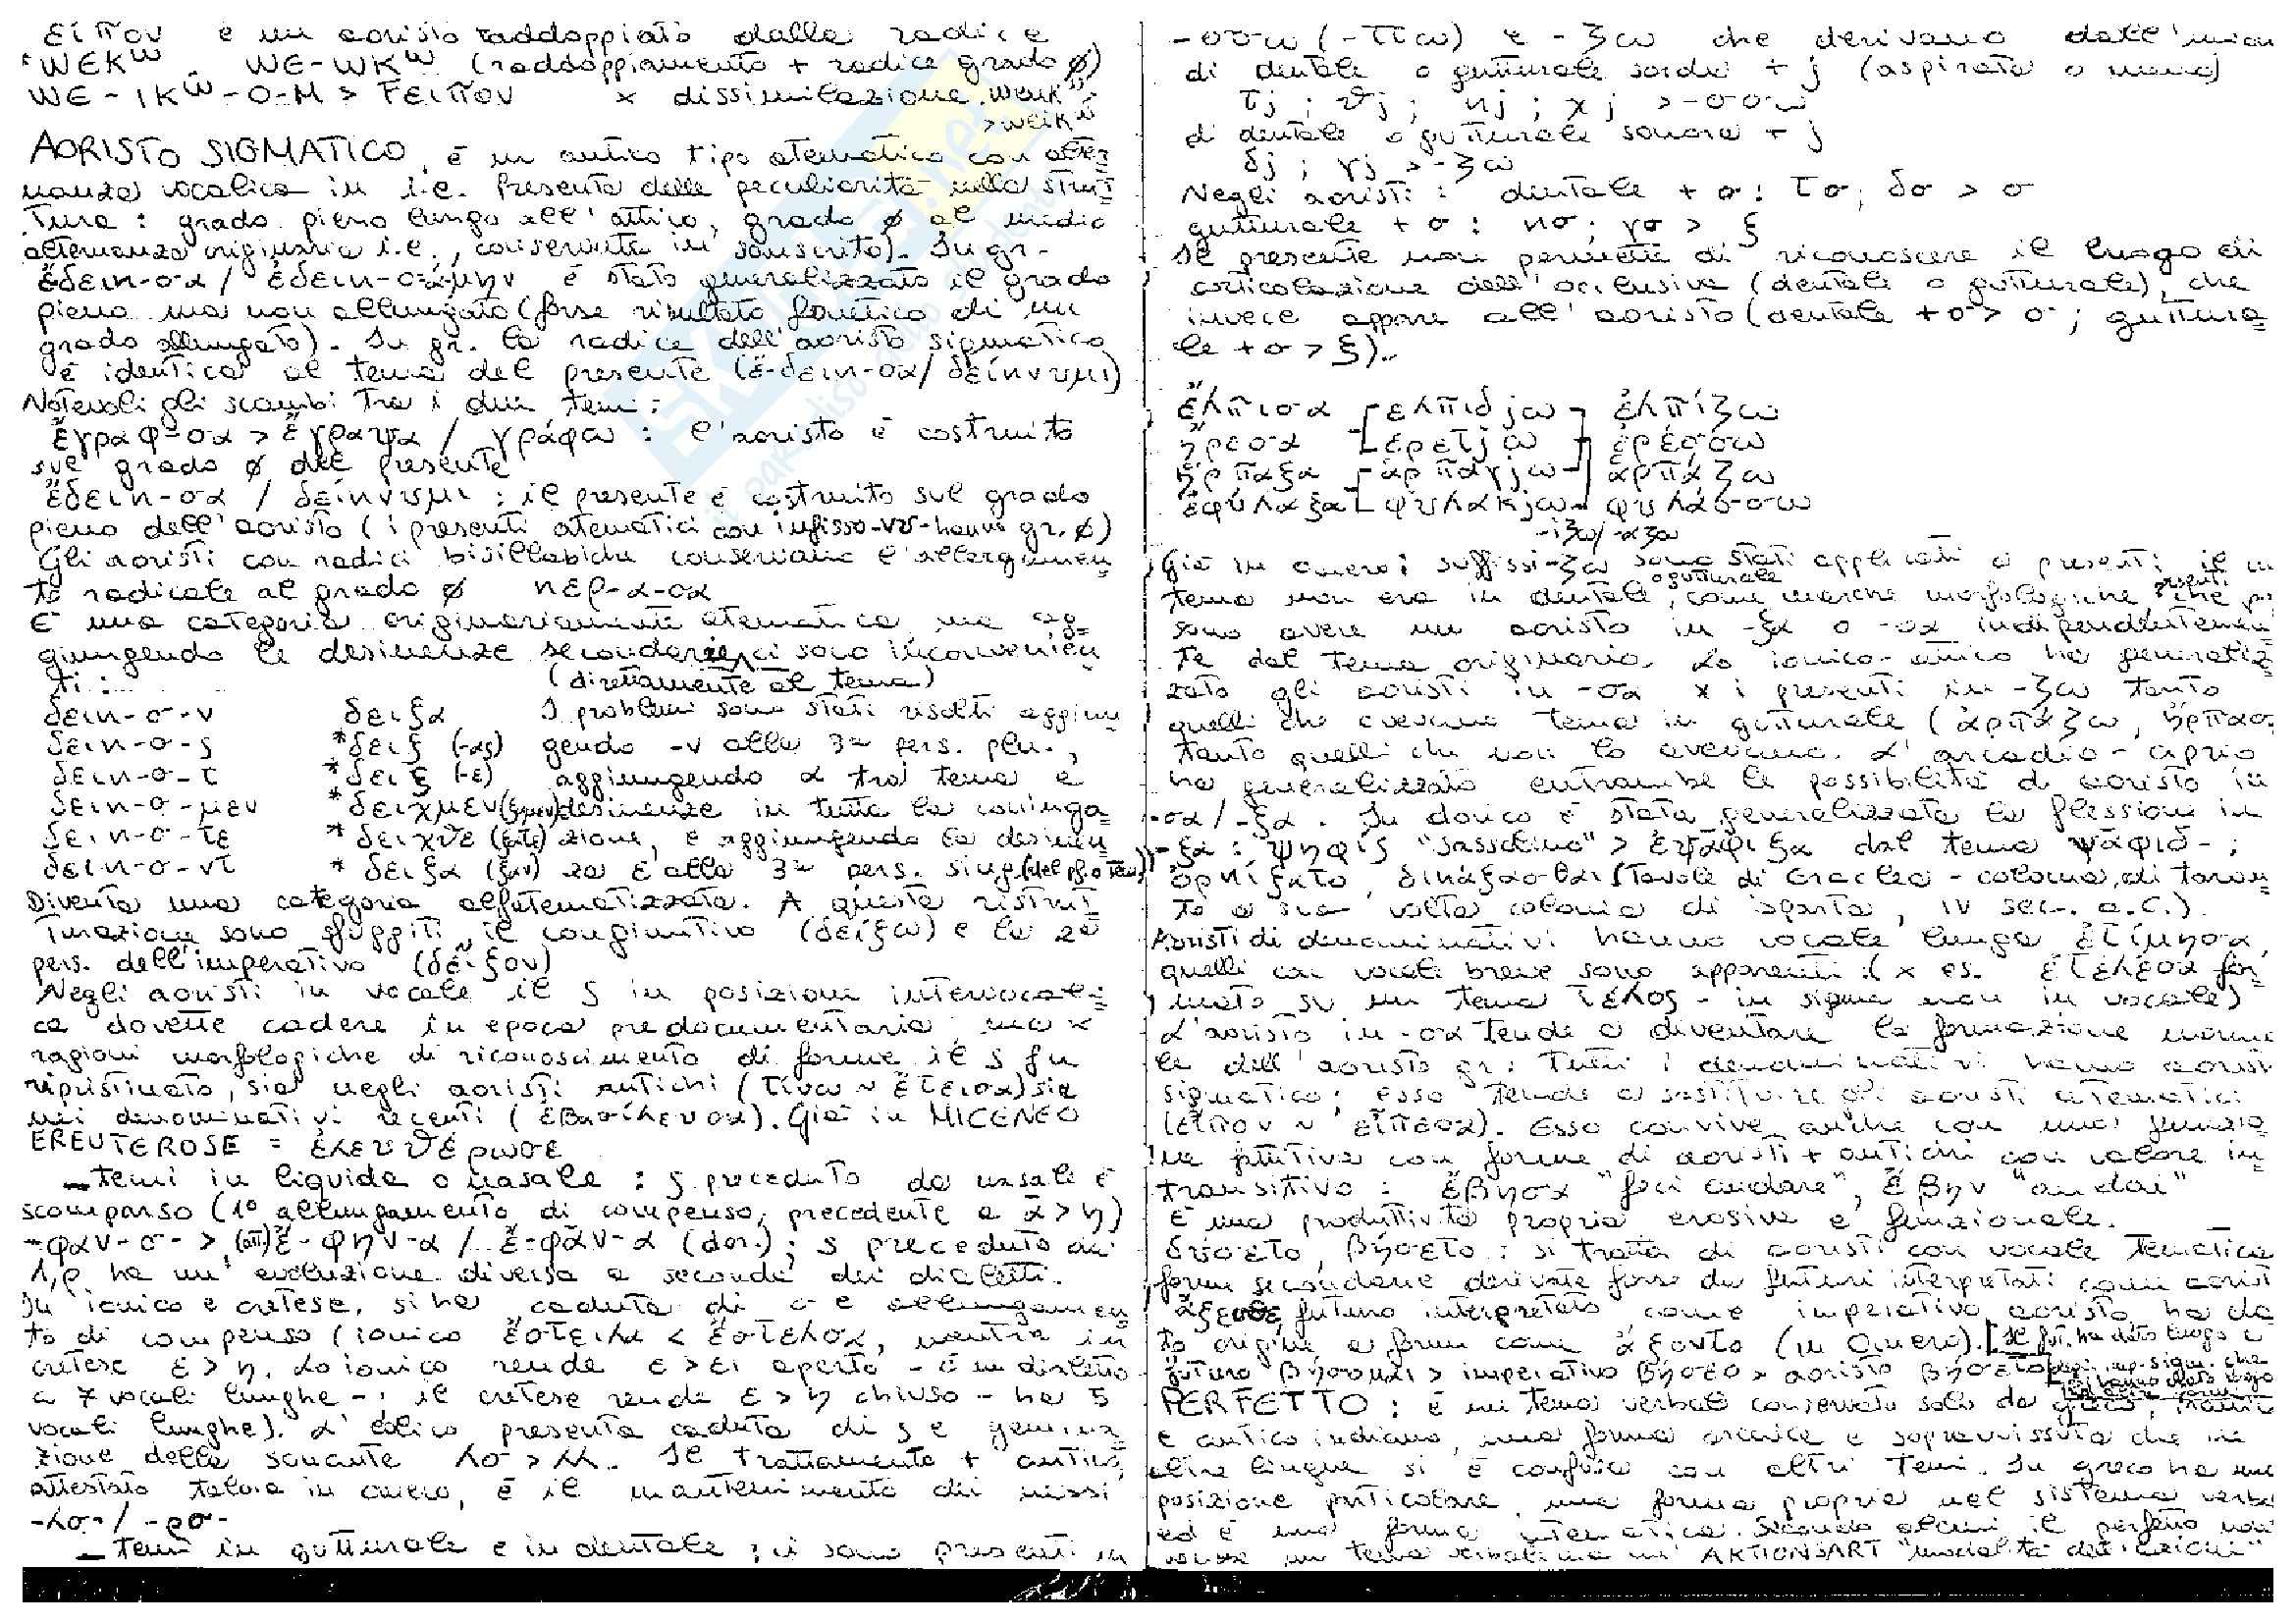 εἶπον è un aoristo raddoppiato dalla radice
*WEKʷ WE-WKʷ (raddoppiamento + radice grado ø)
WE-IKʷ-O-M > Ϝειπον x dissimilazione weuKʷ
> weiKʷ
AORISTO SIGMATICO, è un antico tipo atematico con alter=
nanza vocalica in i.e. Presenta delle peculiarità nella strut=
tura: grado pieno lungo all'attivo, grado ø al medio
alternanza originaria i.e., conservata in sanscrito). In gr.
ἔδεικ-σα / ἐδεικ-σά-μην è stato generalizzato il grado
pieno ma non allungato (forse risultato fonetico di un
grado allungato). In gr. la radice dell'aoristo sigmatico
è identica al tema del presente (ἔ-δεικ-σα/ δείκνυμι)
Notevoli gli scambi tra i due temi:
ἔγραφ-σα > ἔγραψα / γράφω : l'aoristo è costruito
sul grado ø del presente
ἔδεικ-σα / δείκνυμι : il presente è costruito sul grado
pieno dell'aoristo (i presenti atematici con infisso -νυ- hanno gr. ø)
Gli aoristi con radici bisillabiche conservano l'allargamen=
to radicale al grado ø κερ-α-σα
È una categoria originariamente atematica, ma ag=
giungendo le desinenze secondarie ci sono inconvenien=
ti: (direttamente al tema)
δεικ-σ-ν δειξα I problemi sono stati risolti aggiun=
δεικ-σ-ς *δειξ (-ας) gendo -ν alla 3ª pers. plu.,
δεικ-σ-τ *δειξ (-ε) aggiungendo α tra tema e
δεικ-σ-μεν *δειχμεν desinenze in tutta la coniuga=
δεικ-σ-τε *δειχθε (ξατε) zione, e aggiungendo la desinen=
δεικ-σ-ντ *δειξα (ξαν) za ε alla 3ª pers. sing.
Diventa una categoria alfatematizzata. A questa ristrut=
turazione sono sfuggiti il congiuntivo (δείξω) e la 2ª
pers. dell'imperativo (δεῖξον)
Negli aoristi in vocale il ς in posizione intervocali=
ca dovette cadere in epoca predocumentaria, ma x
ragioni morfologiche di riconoscimento di forme il ς fu
ripristinato, sia negli aoristi antichi (τίνω ~ ἔτεισα) sia
nei denominativi recenti (ἐβασίλευσα). Già in MICENEO
EREUTEROSE = ἐλευθέρωσε
- temi in liquida o nasale : ς preceduto da nasale è
scomparso (1° allungamento di compenso, precedente a ᾱ > η)
-φαν-σ- > (att) ἔ-φην-α / ἔ-φᾱν-α (dor.); ς preceduto da
λ,ρ ha un' evoluzione diversa a seconda dei dialetti.
In ionico e cretese, si ha caduta di σ e allungamen=
to di compenso (ionico ἔστειλα < ἔστελσα, mentre in
cretese ε > η. Lo ionico rende ε > ει aperto - è un dialetto
a 7 vocali lunghe -; il cretese rende ε > η chiuso - ha 5
vocali lunghe). L' eolico presenta caduta di ς e gemina=
zione della sonante λσ > λλ. Il trattamento + antico,
attestato talora in omero, è il mantenimento dei nessi
-λσ-/ -ρσ-
- temi in gutturale e in dentale : ci sono presenti in
-σσω (-ττω) e -ζω che derivano dall'union
di dentale o gutturale sorda + j (aspirata o meno)
τj ; θj ; κj ; χj > -σσω
di dentale o gutturale sonora + j
δj ; γj > -ζω
Negli aoristi : dentale + σ : τσ; δσ > σ
gutturale + σ : κσ; γσ > ξ
Il presente non permette di riconoscere il luogo di
articolazione dell'occlusiva (dentale o gutturale), che
invece appare all'aoristo (dentale +σ > σ ; guttura=
le + σ > ξ).
ἔλπισα ελπιδjω ἐλπίζω
ἤρεσα ἐρετjω ἐρέσσω
ἥρπαξα ἁρπαγjω ἁρπάζω
ἐφύλαξα φυλακjω φυλάσσω
-ιζω/-αζω
Già in omero i suffissi -ζω sono stati applicati a presenti il cu
tema non era in dentale o gutturale, come marche morfologiche, presenti che po
sono avere un aoristo in -ξα o -σα indipendentemen=
te dal tema originario. Lo ionico-attico ha generaliz=
zato gli aoristi in -σα x i presenti in -ζω tanto
quelli che avevano tema in gutturale (ἁρπάζω, ἥρπασ
tanto quelli che non lo avevano. L' arcadio-ciprio
ha generalizzato entrambe le possibilità di aoristo in
-σα/-ξα. In dorico è stata generalizzata la flessione in
-ξα : ψηφίς "sassolino" > ἐψάφιξα dal tema ψαφιδ- ;
ὁρκίξατο, δικάξασθαι (Tavole di Eraclea - colonia di taran=
to a sua volta colonia di sparta, IV sec. a.C.).
Aoristi di denominativi hanno vocale lunga ἐτίμησα,
quelli con vocale breve sono apparenti (x es. ἐτέλεσα for=
mato su un tema τέλος - in sigma non in vocale)
L'aoristo in -σα tende a diventare la formazione norma
le dell' aoristo gr: tutti i denominativi hanno aorist
sigmatico; esso tende a sostituire gli aoristi atematici
(εἶπον ~ εἶπεσα). Esso convive anche con una funzio=
ne fattitiva con forme di aoristi + antichi con valore in=
transitivo : ἔβησα "feci andare", ἔβην "andai"
È una produttività propria erosiva e funzionale.
δύσετο, βήσετο : si tratta di aoristi con vocale tematica
forme secondarie derivate forse da futuri interpretati come aorist
futuro interpretato come imperativo aoristo, ha da=
to origine a forme come ἄξοντο (in Omero). [Il fut. ha dato luogo a
futuro βήσομαι > imperativo βήσεο > aoristo βήσετο
PERFETTO : è un tema verbale conservato solo da greco, iranic
e antico indiano, una forma arcaica e sopravvissuta che in
altre lingue si è confusa con altri temi. In greco ha una
posizione particolare, una forma propria nel sistema verba
ed è una forma atematica. Secondo alcuni il perfetto non
un tema verbale ma un' AKTIONSART "modalità dell'azione"